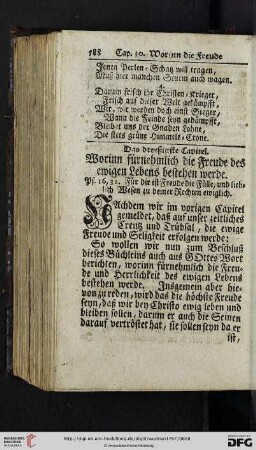 588 Cap. 30. Worinn die Freude
Jenen Perlen-Schatz will tragen,
Muß hier manchen Sturm auch wagen.
4.
Darum frisch ihr Christen-Krieger,
Frisch auf dieser Welt gekämpfft,
Wir, wir werden doch einst Sieger,
Wann die Feinde seyn gedämpfft,
Bleibet uns der Gnaden Lohne,
Die stets grüne Himmels-Crone.
Das dreyßigste Capitel.
Worinn fürnehmlich die Freude des
ewigen Lebens bestehen werde.
Ps. 16, 11. Für dir ist Freude die Fülle, und lieb-
lich Wesen zu deiner Rechten ewiglich.
NAchdem wir im vorigen Capitel
gemeldet, daß auf unser zeitliches
Creutz und Trübsal, die ewige
Freude und Seligkeit erfolgen werde:
So wollen wir nun zum Beschluß
dieses Büchleins auch aus GOttes Wort
berichten, worinn fürnehmlich die Freu-
de und Herrlichkeit des ewigen Lebens
bestehen werde. Insgemein aber hie-
von zu reden, wird das die höchste Freude
seyn, daß wir bey Christo ewig leben und
bleiben sollen, darum er auch die Seinen
darauf vertröstet hat, sie sollen seyn da er
ist,
UNIVERSITÄTS-
BIBLIOTHEK
HEIDELBERG
Gefördert durch
DFG